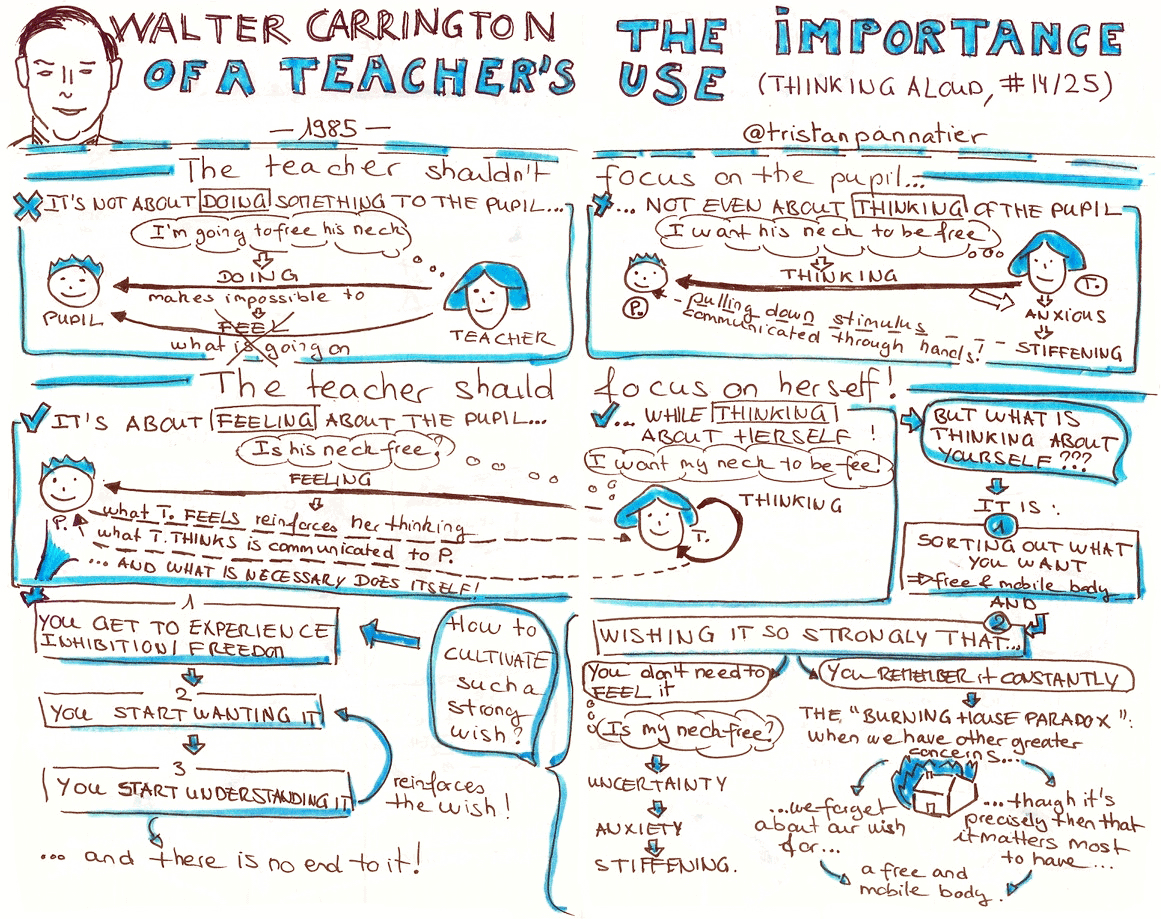 WALTER CARRINGTON
THE IMPORTANCE
OF A TEACHER'S
USE (THINKING ALOUD, #14/25)
— 1985 —
@tristanpannatier
The teacher shouldn't focus on the pupil...
IT'S NOT ABOUT DOING SOMETHING TO THE PUPIL...
I'm going to free his neck
DOING
makes impossible to
FEEL
what is going on
PUPIL
TEACHER
... NOT EVEN ABOUT THINKING OF THE PUPIL
I want his neck to be free
THINKING
P.
T.
pulling down stimulus
communicated through hands!
ANXIOUS
STIFFENING
The teacher should focus on herself!
IT'S ABOUT FEELING ABOUT THE PUPIL...
Is his neck free?
FEELING
P.
what T. FEELS reinforces her thinking
what T. THINKS is communicated to P.
... AND WHAT IS NECESSARY DOES ITSELF!
... WHILE THINKING
ABOUT HERSELF !
I want my neck to be fee!
THINKING
T.
BUT WHAT IS
THINKING ABOUT
YOURSELF ???
IT IS :
1
SORTING OUT WHAT
YOU WANT
⇒ free & mobile body
AND
2
WISHING IT SO STRONGLY THAT...
You don't need to
FEEL it
Is my neck free?
UNCERTAINTY
ANXIETY
STIFFENING.
YOU REMEMBER it CONSTANTLY
THE "BURNING HOUSE PARADOX":
when we have other greater
concerns...
...we forget
about our wish
for...
...though it's
precisely then that
it matters most
to have...
a free and
mobile body.
How to
CULTIVATE
such a
strong
wish?
1
YOU GET TO EXPERIENCE
INHIBITION / FREEDOM
2
YOU START WANTING IT
3
YOU START UNDERSTANDING IT
reinforces
the wish!
... and there is no end to it!